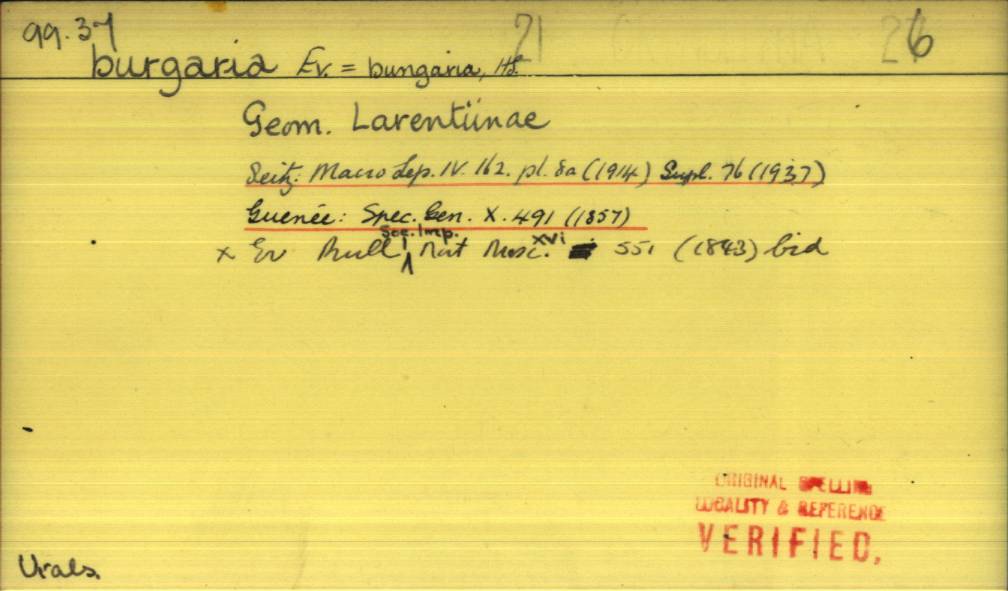 99.37 21 26
burgaria Ev. = bungaria, HS.
Geom. Larentiinae
Seitz: Macro Lep. IV. 162. pl. 8a (1914) Supl. 76 (1937)
Guenée: Spec. Gen. X. 491 (1857)
Soc. Imp. xvi
x Ev Bull Nat Mosc. 551 (1843) bid
ORIGINAL SPELLING
LOCALITY & REFERENCE
VERIFIED.
Urals